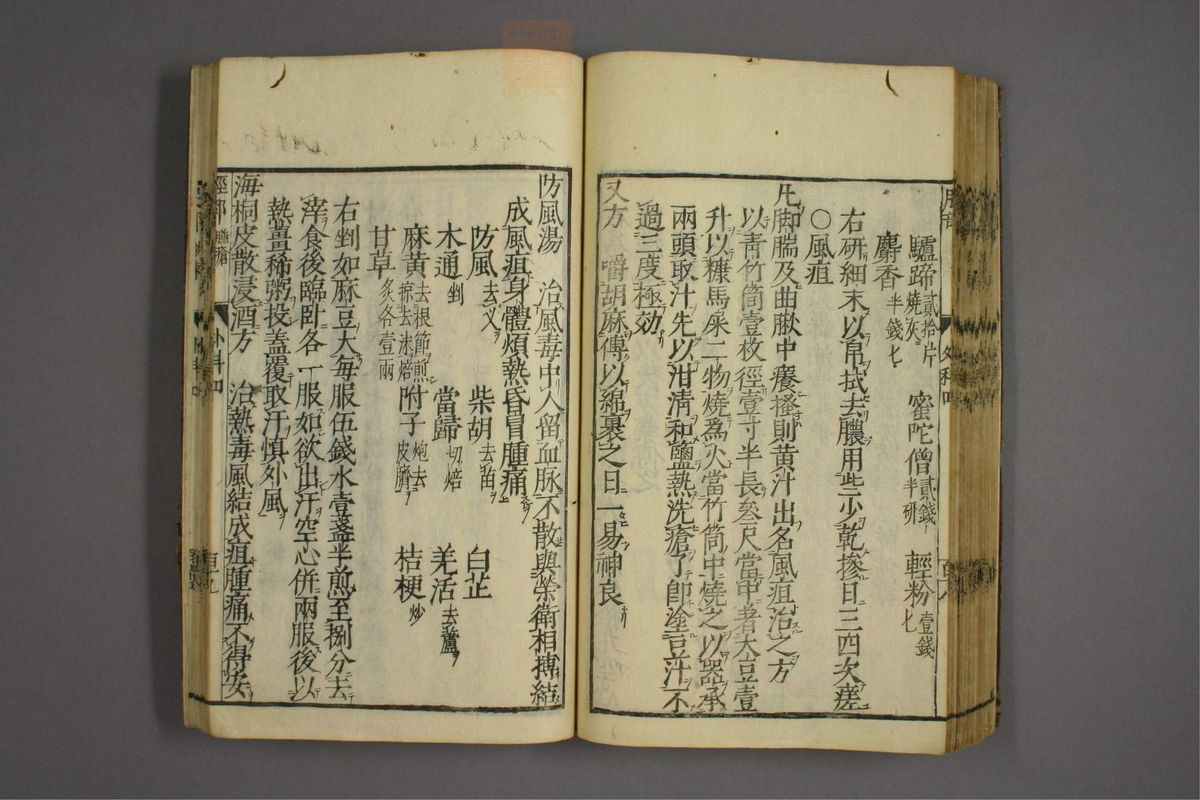 驢蹄貳拾片燒灰　蜜陀僧貳錢半研　輕粉壹錢匕
麝香半錢匕
右研細末以帛拭去膿用些少乾摻日三四次瘥
○風疽
凡脚腨及曲䐐中癢搔則黄汁出名風疽治之方
以青竹筒壹枚徑壹寸半長叁尺當中著大豆壹
升以糠馬屎二物燒爲火當竹筒中燒之以器承
兩頭取汁先以泔清和鹽熱洗瘡了卽塗豆汁不
過三度極効
又方　嚼胡麻傅以綿裹之日一易神良
防風湯　治風毒中人留血脉不散與榮衛相搏結
成風疽身體煩熱昏冒腫痛
防風去叉　柴胡去苗　白芷
木通剉　當歸切焙　羌活去蘆
麻黄去根節煎掠去沫焙　附子炮去皮臍　桔梗炒
甘草炙各壹兩
右剉如麻豆大每服伍錢水壹盞半煎至捌分去
滓食後臨卧各一服如欲出汗空心併兩服後以
熱薑稀粥投蓋覆取汗慎外風
海桐皮散浸酒方　治熱毒風結成疽腫痛不得安
外科四